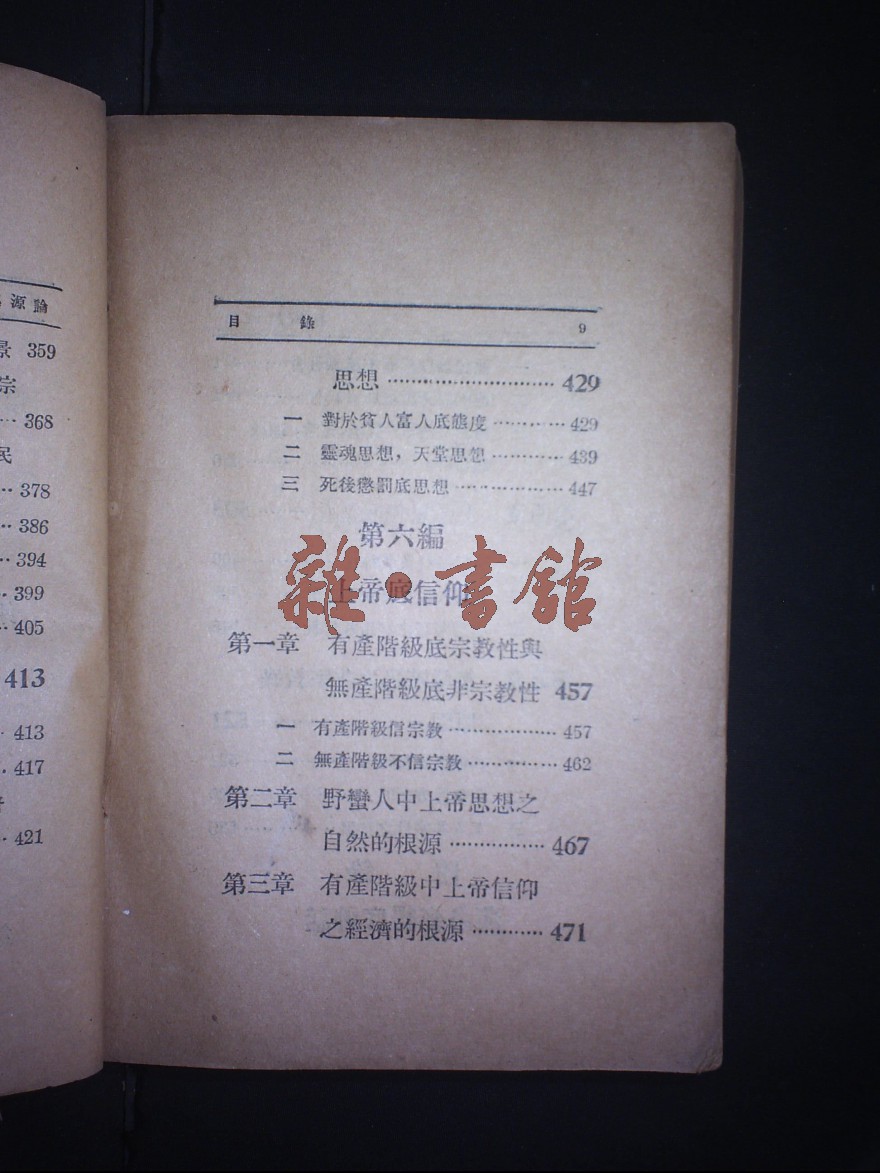 源論
景 359
宗
368
民
378
386
394
399
405
413
413
417
421
目 錄 9
思想 ………………………… 429
一 對於貧人富人底態度 ………… 429
二 靈魂思想，天堂思想 ………… 439
三 死後懲罰底思想 ……………… 447
第六編
上帝底信仰
雜·書館
第一章 有產階級底宗教性與
無產階級底非宗教性 457
一 有產階級信宗教 ……………… 457
二 無產階級不信宗教 …………… 462
第二章 野蠻人中上帝思想之
自然的根源 ……………… 467
第三章 有產階級中上帝信仰
之經濟的根源 ………… 471